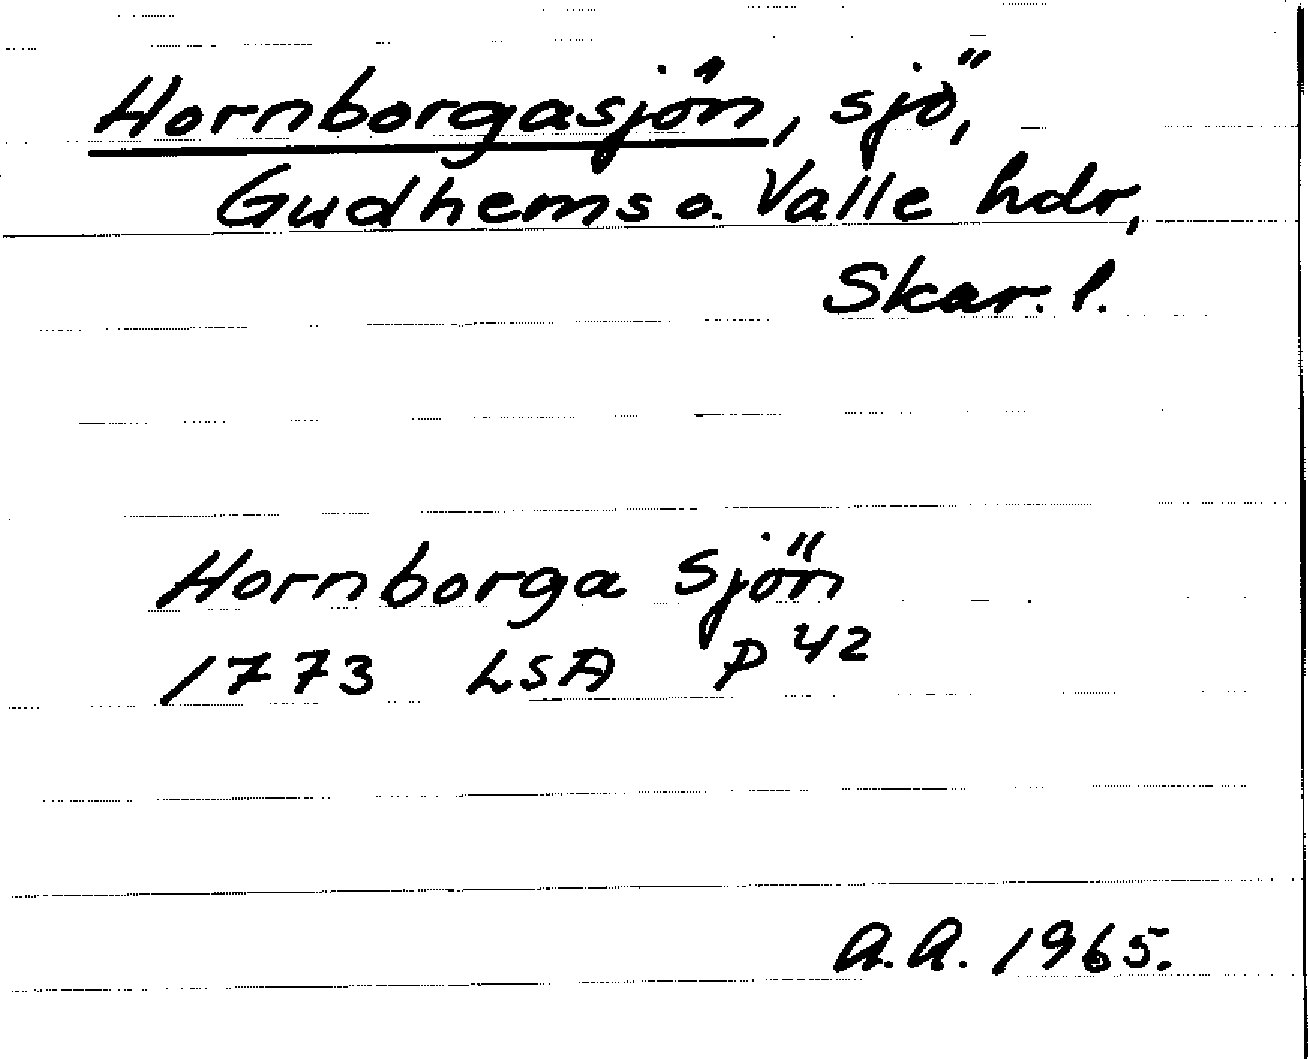 Hornborgasjön, sjö,
Gudhems o. Valle hdr,
Skar. l.
Hornborga Sjön
1773 LSA P 42
A.A. 1965.